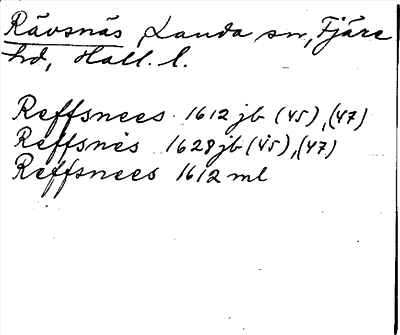 Rävsnäs Landa sn, Fjäre
hd, Hall. l.
Reffsnees 1612 jb (45), (47)
Reffsnes 1628 jb (45), (47)
Reffsnees 1612 ml